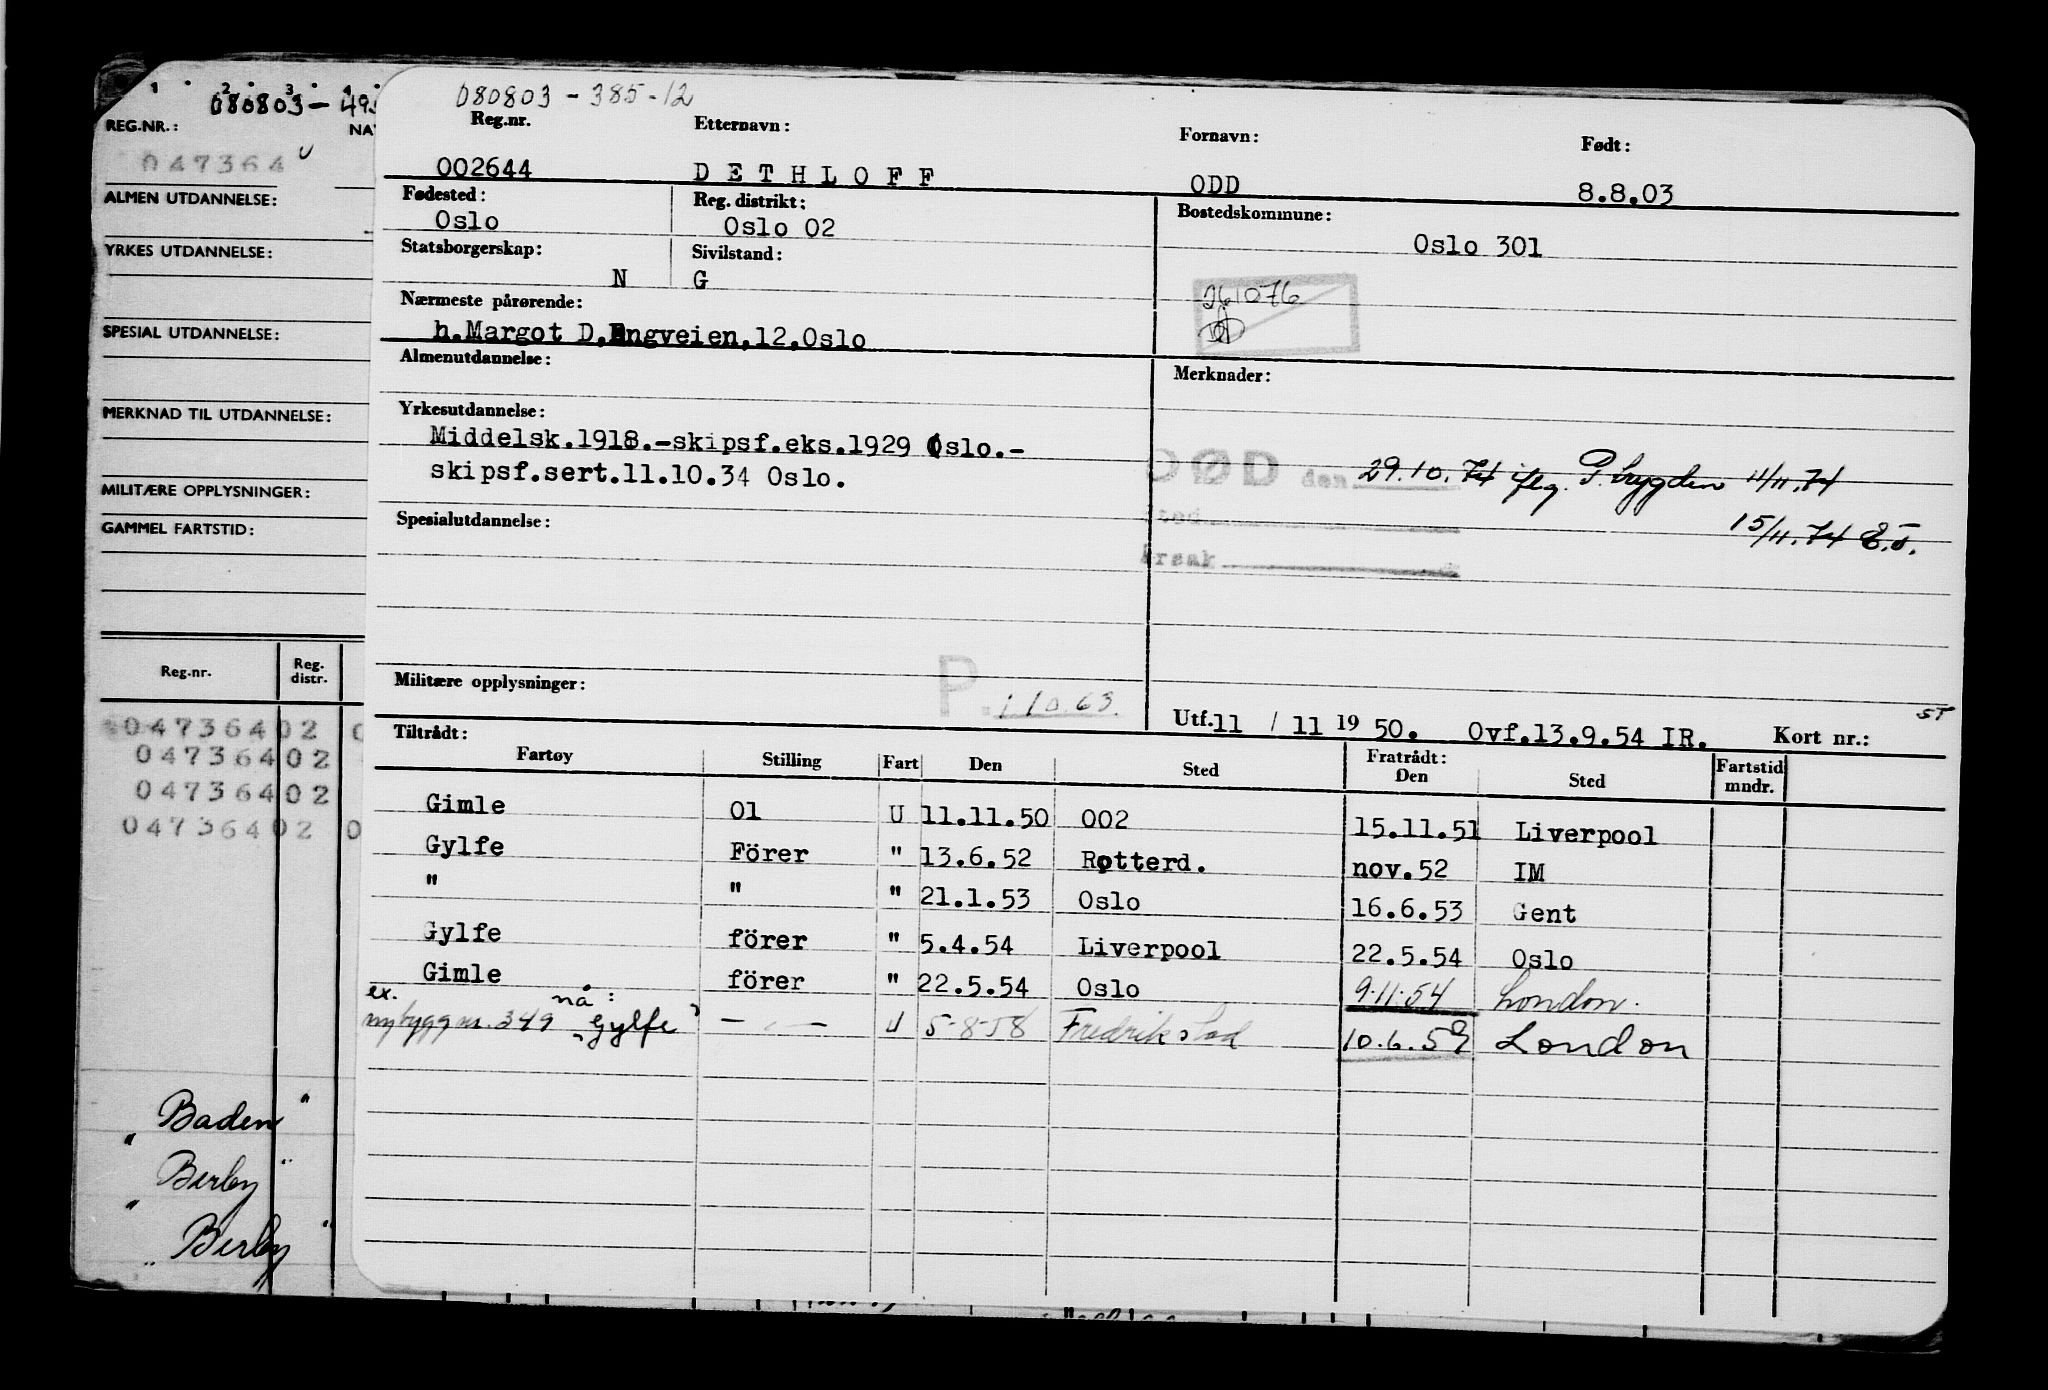 1 2 3 4
080803 - 495
REG.NR.: NA
047364 U
ALMEN UTDANNELSE:
YRKES UTDANNELSE:
SPESIAL UTDANNELSE:
MERKNAD TIL UTDANNELSE:
MILITÆRE OPPLYSNINGER:
GAMMEL FARTSTID:
Reg.nr. Reg. distr.
04736402 0
04736402
04736402
04736402 0
"Baden"
"Berby"
"Berby"
080803 - 385-12
Reg.nr. Etternavn: Fornavn: Født:
002644 DETHLOFF ODD 8.8.03
Fødested: Reg. distrikt: Bostedskommune:
Oslo Oslo 02 Oslo 301
Statsborgerskap: Sivilstand:
N G
261076
Nærmeste pårørende:
h.Margot D.Engveien.12.Oslo
Almenutdannelse: Merknader:
Yrkesutdannelse:
Middelsk.1918.-skipsf.eks.1929 Oslo.-
skipsf.sert.11.10.34 Oslo.
DØD den 29.10.74 iflg. P.trygden 11/11.74
Sted 15/11.74
Årsak
Spesialutdannelse:
Militære opplysninger: P. 1 10.63.
Utf. 11 / 11 19 50. Ovf.13.9.54 IR. Kort nr.: ST
Tiltrådt: Fratrådt:
Fartøy Stilling Fart Den Sted Den Sted Fartstid mndr.
Gimle 01 U 11.11.50 002 15.11.51 Liverpool
Gylfe Förer " 13.6.52 Rotterd. nov.52 IM
" " " 21.1.53 Oslo 16.6.53 Gent
Gylfe förer " 5.4.54 Liverpool 22.5.54 Oslo
Gimle förer " 22.5.54 Oslo 9.11.54 London.
ex. nå:
nybygg nr. 349 "Gylfe" — " — U 5-8-58 Fredrikstad 10.6.59 London